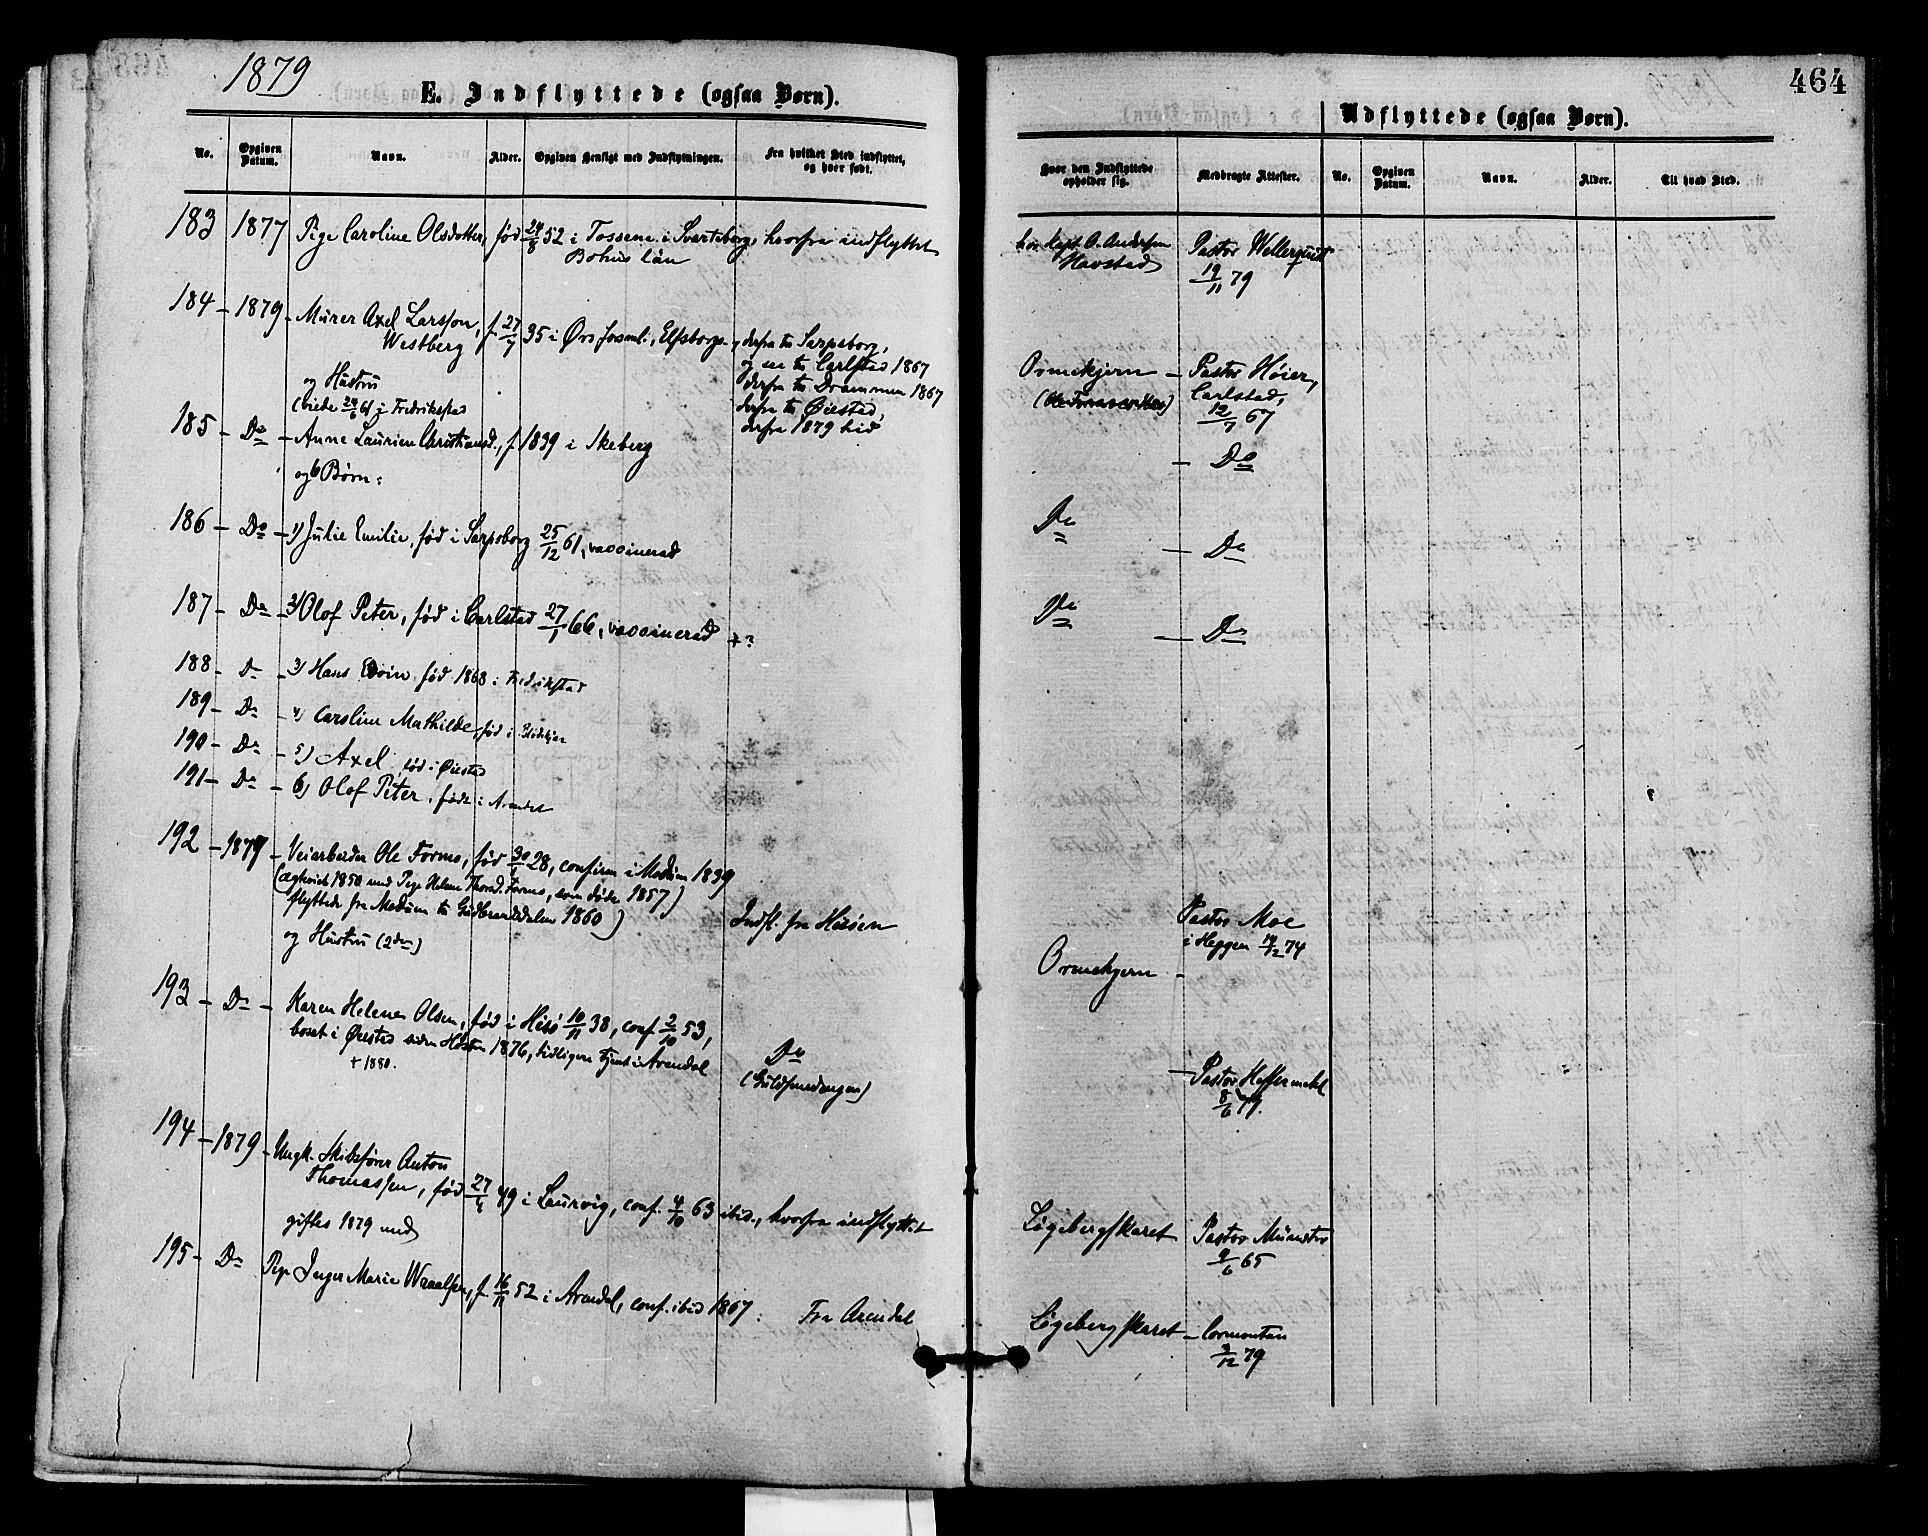 1879
E. Indflyttede (ogsaa Børn).
No. Opgiven Datum. Navn. Alder. Opgiven Hensigt med Indflytningen. Fra hvilket Sted indflyttet, og hvor født.
183 1877 Pige Caroline Olsdotter, fød 24/8 52 i Tossene i Svarteborg, hvorfra indflyttet
Bohus län
184 - 1879 - Murer Axel Larsson, f. 27/7 35 i Ørs , Elfsborgs , derfra til Sarpsborg,
Westberg
og til Carlstad 1867
derfra til Drammen 1867
derfra til Øiestad,
derfra 1879 hid
og Hustru
(viede 61 i Fredrikstad
185 - Do - Anne Laurien Christiansd., f. 1839 i Skeberg
og 6 Børn:
186 - Do - 1) Julie Emilie, fød i Sarpsborg 25/12 61, vaccinerad
187 - Do - 2) Olof Peter, fød i Carlstad 27/1 66, vaccinerad +?
188 - Do - 3) Hans fød 1868 i Fredrikstad
189 - Do - 4) Caroline Mathilde, fød i
190 - Do - 5) Axel, fød i Øiestad
191 - Do - 6) Olof Peter, født i Arendal
192 - 1879 - Veiarbeider Ole Formo, fød 28, confirm i Modum 1839
(ægtevied 1850 med Pige Helene Thorsd. Formo, som døde 1857)
flyttede fra Modum til Gudbrandsdalen 1860)
Indfl. fra Hisøen
og Hustru (2den)
193 - Do - Karen Helene Olsen, fød i Hisø 10/11 38, conf. 2/10 53,
bosat i Øiestad siden Høsten 1876, tidligere tjent i Arendal
+ 1880.
Do
(Guldsmedengen)
194 - 1879 - Ungk. Skibsfører Anton
Thomassen, fød 27/4 49 i Laurvig, conf. 4/10 63 ibid., hvorfra indflyttet
giftes 1879 med
195 - Do Pige Inger Marie Waaalsen, f. 16/11 52 i Arendal, conf. ibid 1867. Fra Arendal
464
Udflyttede (ogsaa Børn).
Hvor den Indflyttede opholder sig. Medbragte Attester. No. Opgiven Datum. Navn. Alder. Til hvad Sted.
hos Kapt. O. Andersen Pastor Wellerquist
Havstad
19/11 79
Ormekjern - Pastor Höier,
Carlstad,
12/7 67
- Do
Do
- Do
Do
- Do
Pastor Moe
i Heggen 74
Ormekjern -
- Pastor Heffermehl
8/6 79.
Løgebergskaret Pastor Münster
9/6 65
Løgebergskaret -
3/12 79